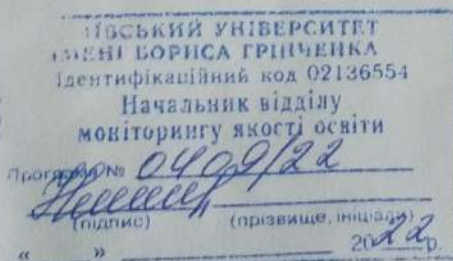 ІВСЬКИЙ УНІВЕРСИТЕТ
ІМЕНІ БОРИСА ГРІНЧЕНКА
Ідентифікаційний код 02136554
Начальник відділу
моніторингу якості освіти
Програма № 0409/22
(підпис) (прізвище, ініціали)
« » 2022р.